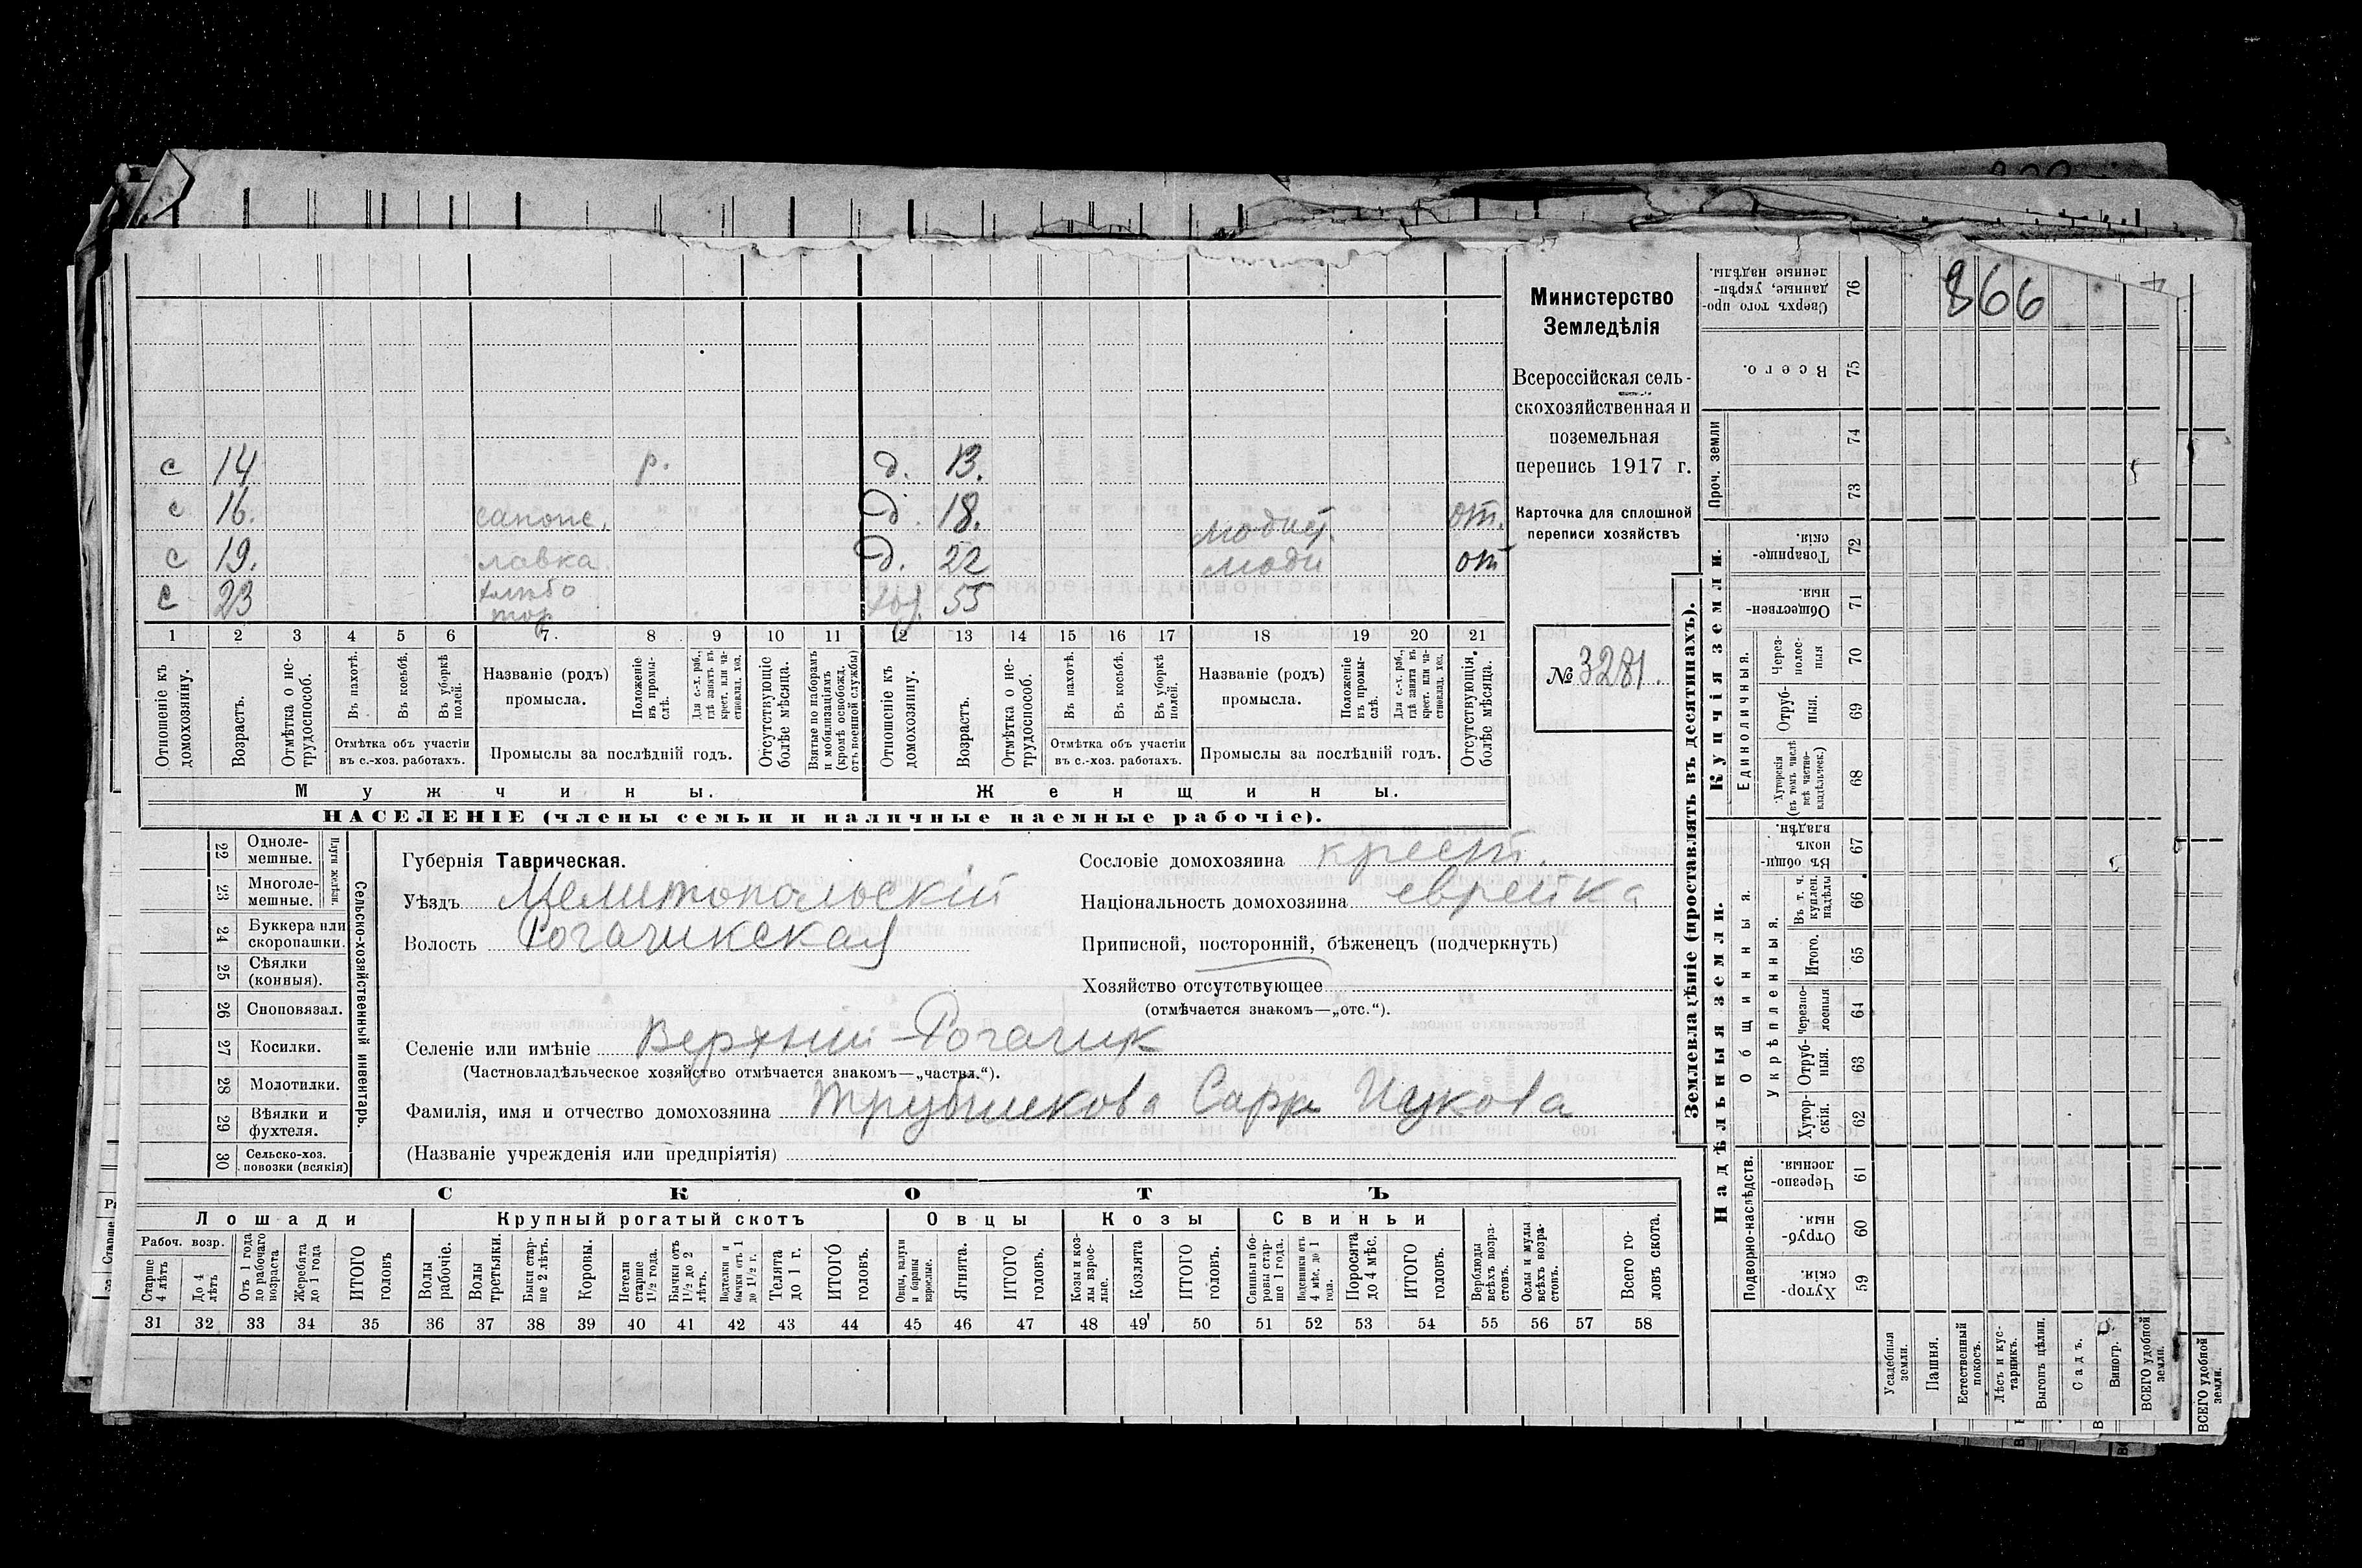 866
Министерство
Земледѣлія
Всероссійская сель-
скохозяйственная и
поземельная
перепись 1917 г.
Карточка для сплошной
переписи хозяйствъ
№ 3281.
с 14 р. д. 13.
с 16. сапож. д. 18. модист. от.
с 19. лавка. д. 22 моди от
с 23 хлѣбо хоз. 55
тор.
1 2 3 4 5 6 7. 8 9 10 11 12 13 14 15 16 17 18 19 20 21
Отношеніе къ домохозяину.
Возрастъ.
Отмѣтка о не-трудоспособ.
Въ пахотѣ.
Въ косьбѣ.
Въ уборкѣ полей.
Отмѣтка объ участіи
въ с.-хоз. работахъ.
Названіе (родъ)
промысла.
Положеніе въ промы-слѣ.
Для с.-х. раб., гдѣ занятъ въ крест. или ча-стновлад. хоз.
Промыслы за послѣдній годъ.
Отсутствующіе болѣе мѣсяца.
Взятые по наборамъ и мобилизаціямъ (кромѣ освобожд. отъ военной службы)
Отношеніе къ домохозяину.
Возрастъ.
Отмѣтка о не-трудоспособ.
Въ пахотѣ.
Въ косьбѣ.
Въ уборкѣ полей.
Отмѣтка объ участіи
въ с.-хоз. работахъ.
Названіе (родъ)
промысла.
Положеніе въ промы-слѣ.
Для с.-х. раб., гдѣ занята въ крест. или ча-стновлад. хоз.
Промыслы за послѣдній годъ.
Отсутствующія болѣе мѣсяца.
Мужчины. Женщины.
НАСЕЛЕНІЕ (члены семьи и наличные наемные рабочіе).
Сельско-хозяйственный инвентарь.
Плуги желѣзн.
22 Одноле-мешные.
23 Многоле-мешные.
24 Буккера или скоропашки.
25 Сѣялки (конныя).
26 Сноповязал.
27 Косилки.
28 Молотилки.
29 Вѣялки и фухтеля.
30 Сельско-хоз. повозки (всякія)
Губернія Таврическая.
Уѣздъ Мелитопольскій
Волость Рогачикская
Сословіе домохозяина крест.
Національность домохозяина еврейка
Приписной, посторонній, бѣженецъ (подчеркнуть)
Хозяйство отсутствующее
(отмѣчается знакомъ—„отс.“).
Селеніе или имѣніе Верхній Рогачик
(Частновладѣльческое хозяйство отмѣчается знакомъ—„частвл.“).
Фамилія, имя и отчество домохозяина Сарра
(Названіе учрежденія или предпріятія)
СКОТЪ
Лошади Крупный рогатый скотъ Овцы Козы Свиньи
Рабоч. возр.
Старше 4 лѣтъ
До 4 лѣтъ
Отъ 1 года до рабочаго возраста
Жеребята до 1 года
ИТОГО головъ
Волы рабочіе.
Волы третьяки.
Быки стар-ше 2 лѣтъ.
Коровы.
Нетели старше 1½ года.
Бычки отъ 1½ до 2 лѣтъ.
Подтелки и бычки отъ 1 до 1½ г.
Телята до 1 г.
ИТОГО головъ.
Овцы, валухи и бараны взрослые.
Ягнята.
ИТОГО головъ.
Козы и коз-лы взрос-лые.
Козлята
ИТОГО головъ.
Свиньи и бо-ровы стар-ше 1 года.
Подсвинки отъ 4 мѣс. до 1 года.
Поросята до 4 мѣс.
ИТОГО головъ.
Верблюды всѣхъ возра-стовъ.
Ослы и мулы всѣхъ возра-стовъ.
Всего го-ловъ скота.
31 32 33 34 35 36 37 38 39 40 41 42 43 44 45 46 47 48 49 50 51 52 53 54 55 56 57 58
Землевладѣніе (проставлять въ десятинахъ).
Сверхъ того про-данные, укрѣп-ленные надѣлы. 76
Всего. 75
Проч. земли 74
73
Купчія земли.
Товарище-скія. 72
Обществен-ныя. 71
Единоличныя.
Через-полос-ныя 70
Отруб-ныя. 69
Хуторскія (въ томъ числѣ всѣ частно-владѣльческ.) 68
Надѣльныя земли.
Общинныя.
Въ общи-номъ владѣн. 67
Укрѣпленныя.
Въ т. ч. куплен. надѣлы 66
Итого. 65
Черезпо-лосныя 64
Отруб-ныя. 63
Хутор-скія. 62
Подворно-наслѣдств.
Черезпо-лосныя. 61
Отруб-ныя. 60
Хутор-скія. 59
Усадебныя земли.
Пашня.
Естественный покосъ.
Лѣсъ и кус-тарникъ.
Выгонъ цѣлин.
Садъ.
Виногр.
ВСЕГО удобной земли.
ВСЕГО удобной земли.